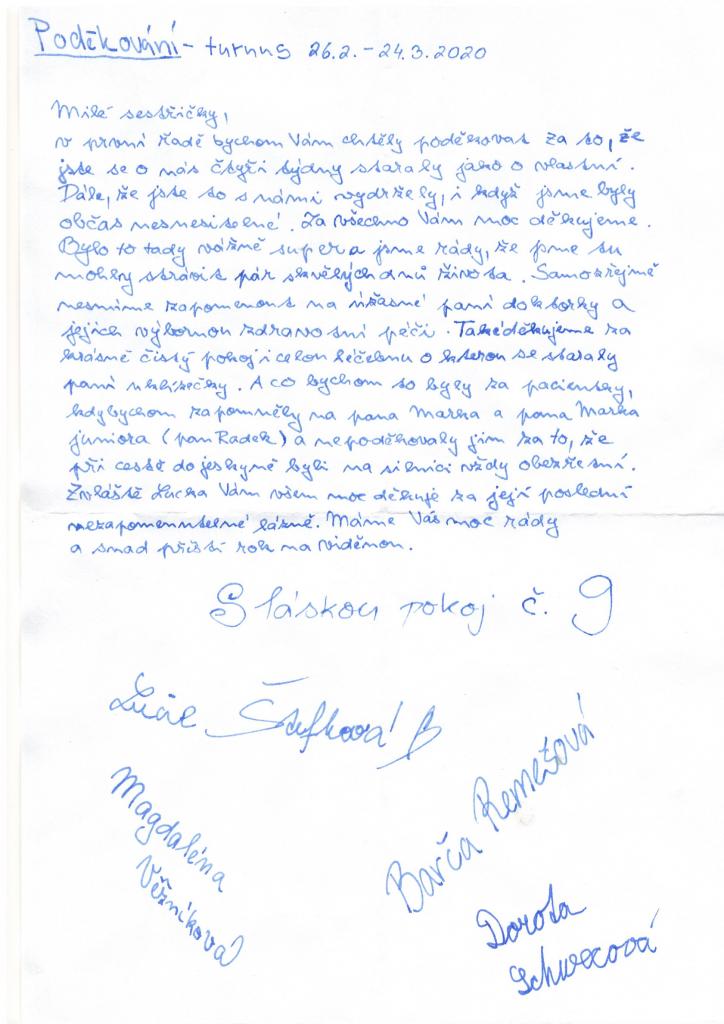 Poděkování - turnus 26.2. - 24.3.2020
Milé sestřičky,
v první řadě bychom Vám chtěly poděkovat za to, že
jste se o nás čtyři týdny staraly jako o vlastní.
Dále, že jste to s námi vydržely, i když jsme byly
občas nesnesitelné. Za všechno Vám moc děkujeme.
Bylo to tady vážně super a jsme rády, že jsme tu
mohly strávit pár skvělých dnů života. Samozřejmě
nesmíme zapomenout na úžasné paní doktorky a
jejich výbornou zdravotní péči. Také děkujeme za
krásně čistý pokoj i celou léčebnu o kterou se staraly
paní uklízečky. A co bychom to byly za pacientky,
kdybychom zapomněly na pana Marka a pana Marka
juniora (pan Radek) a nepoděkovaly jim za to, že
při cestě do jeskyně byli na silnici vždy obezřetní.
Zvláště Lucka Vám všem moc děkuje za její poslední
nezapomenutelné lázně. Máme Vás moc rády
a snad příští rok na viděnou.
S láskou pokoj č. 9
Lucie
Magdaléna
Věžníková
Barča Remešová
Dorota
Schwecová